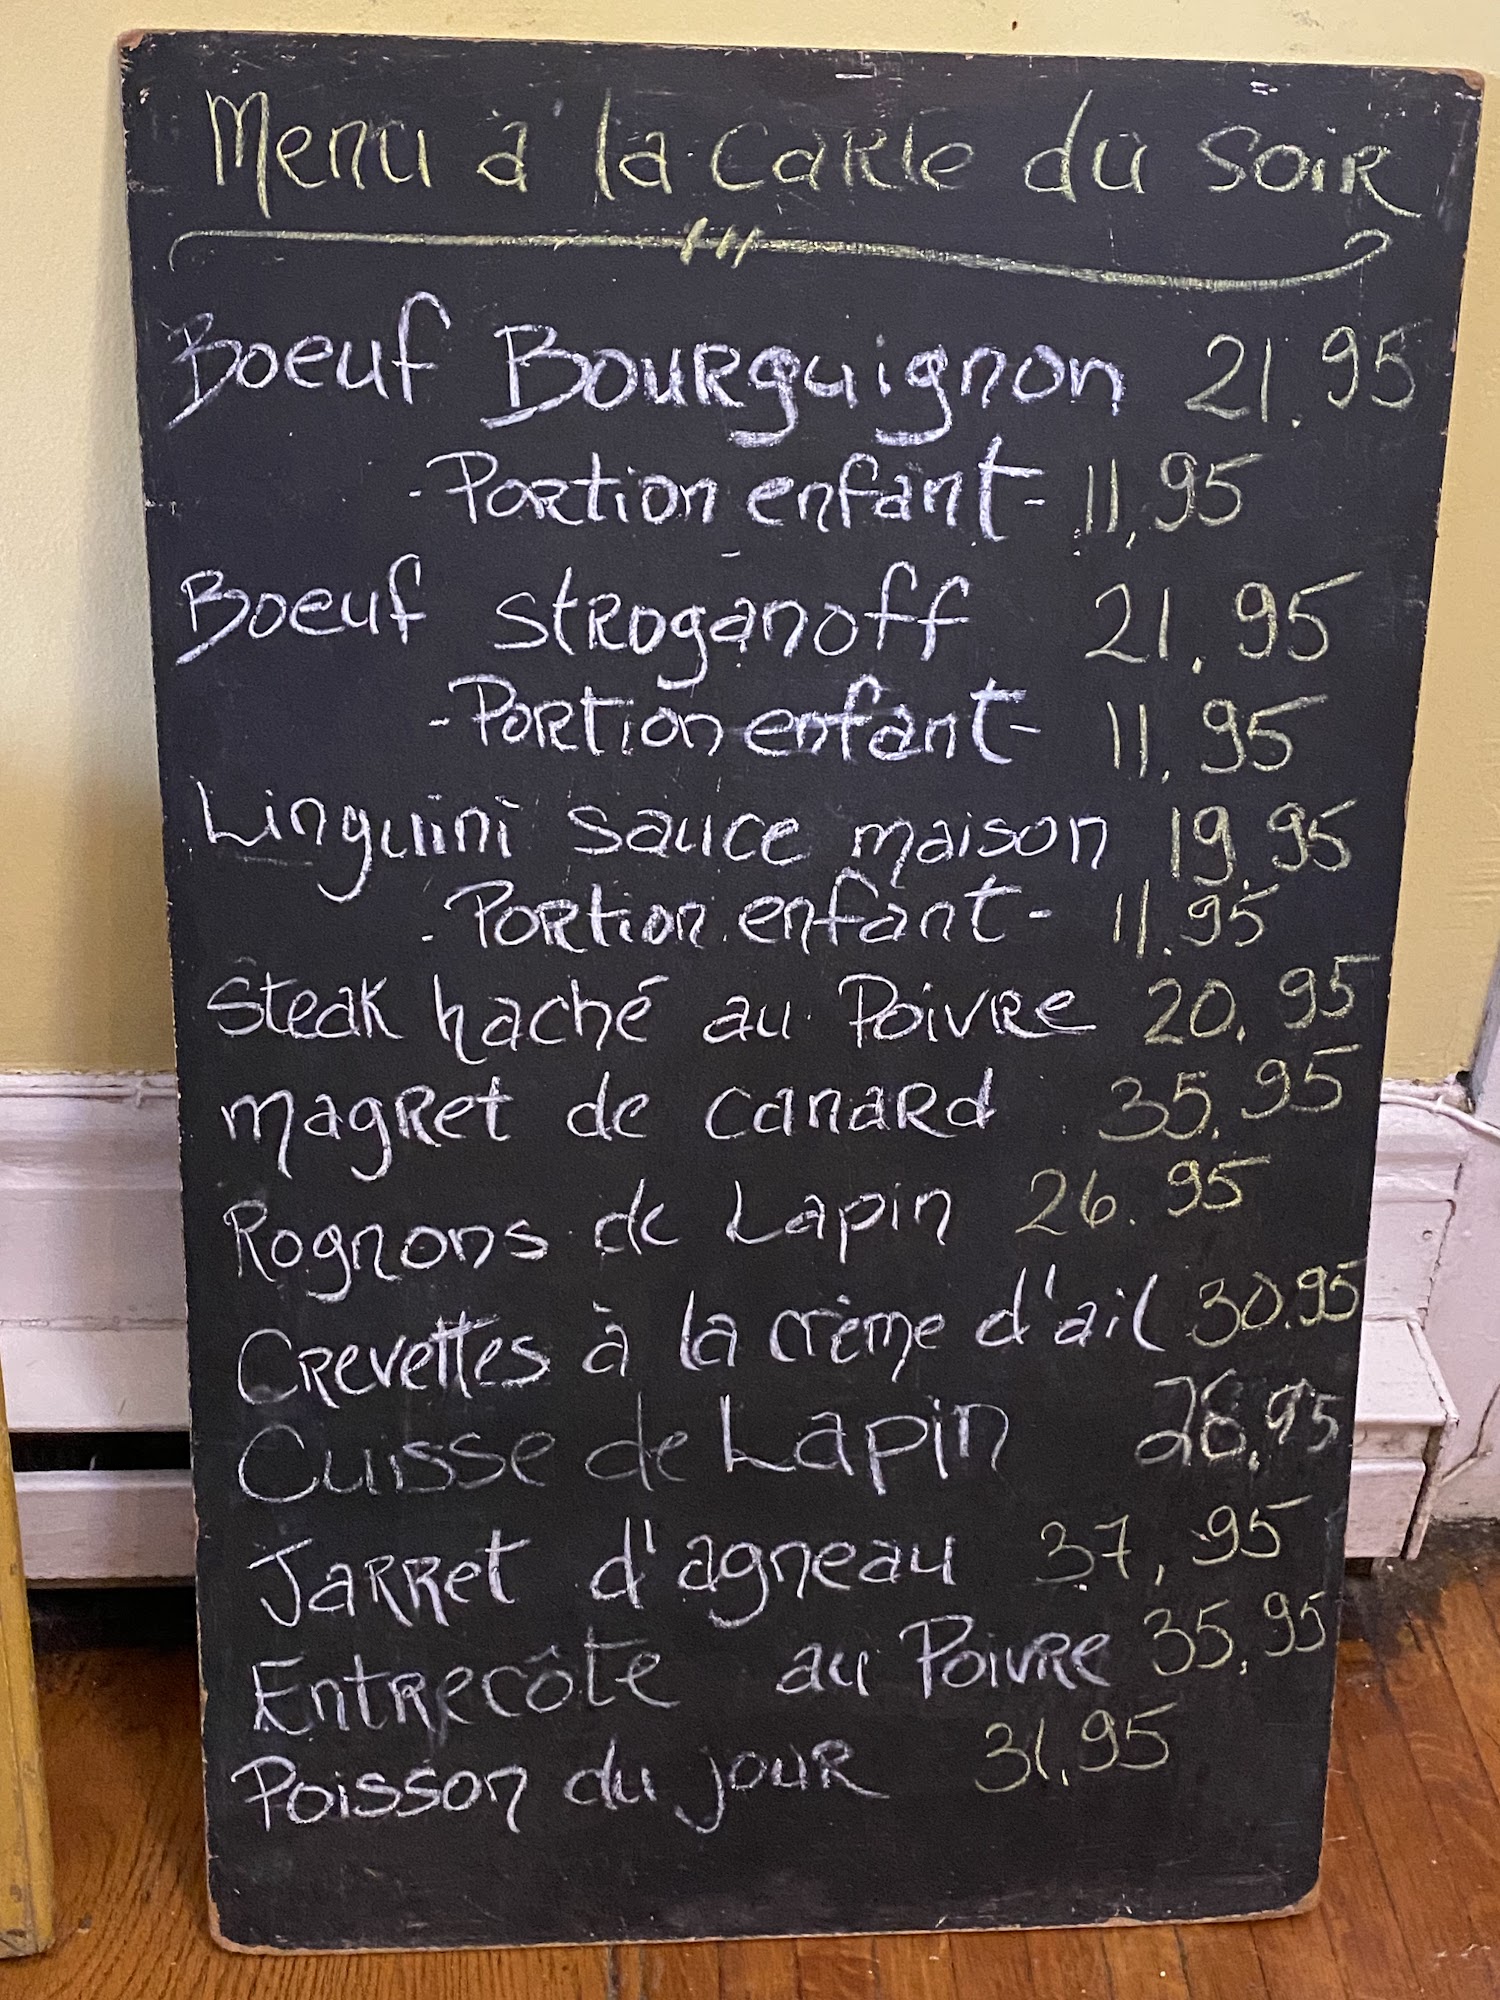 Menu à la carte du soir
Boeuf Bourguignon 21.95
- Portion enfant - 11.95
Boeuf stroganoff 21.95
- Portion enfant - 11.95
Linguini sauce maison 19.95
- Portion enfant - 11.95
Steak haché au Poivre 20.95
magret de canard 35.95
Rognons de Lapin 26.95
Crevettes à la crème d'ail 30.95
Cuisse de Lapin 26.95
Jarret d'agneau 37,95
Entrecôte au Poivre 35.95
Poisson du jour 31.95